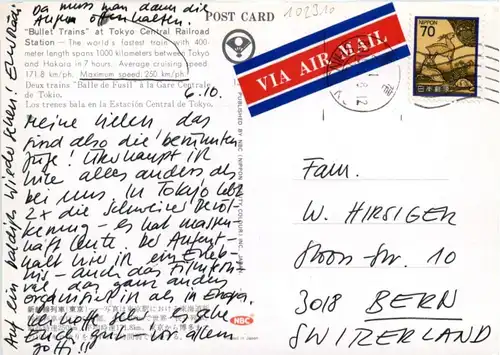 Da muss man dann die
Augen offenhalten.
POST CARD
1023.10
"Bullet Trains" at Tokyo Central Railroad
Station – The world's fastest train with 400-
meter length spans 1000 kilometers between Tokyo
and Hakata in 7 hours. Average cruising speed
171.8 km/ph. Maximum speed, 250 km/ph.
Deux trains "Balle de Fusil" à la Gare Centrale
de Tokio.
Los trenes bala en la Estación Central de Tokyo.
6.10.
Meine Lieben das
sind also die berühmten
Züge! Überhaupt ist
hier alles anders als
bei uns. In Tokyo lebt
2x die Schweizer Bevöl-
kerung – es hat massen-
haft Leute. Der Aufent-
halt hier ist ein Erleb-
nis – auch das
das ganz anders
organisiert ist als in Europa.
Ich hoffe sehr es gehe
Euch gut vor allem
Auf ein baldiges wiedersehen!
VIA AIR MAIL
NIPPON
70
日本郵便
Fam.
W. HIRSIGER
Str. 10
3018 BERN
SWITZERLAND
NBC